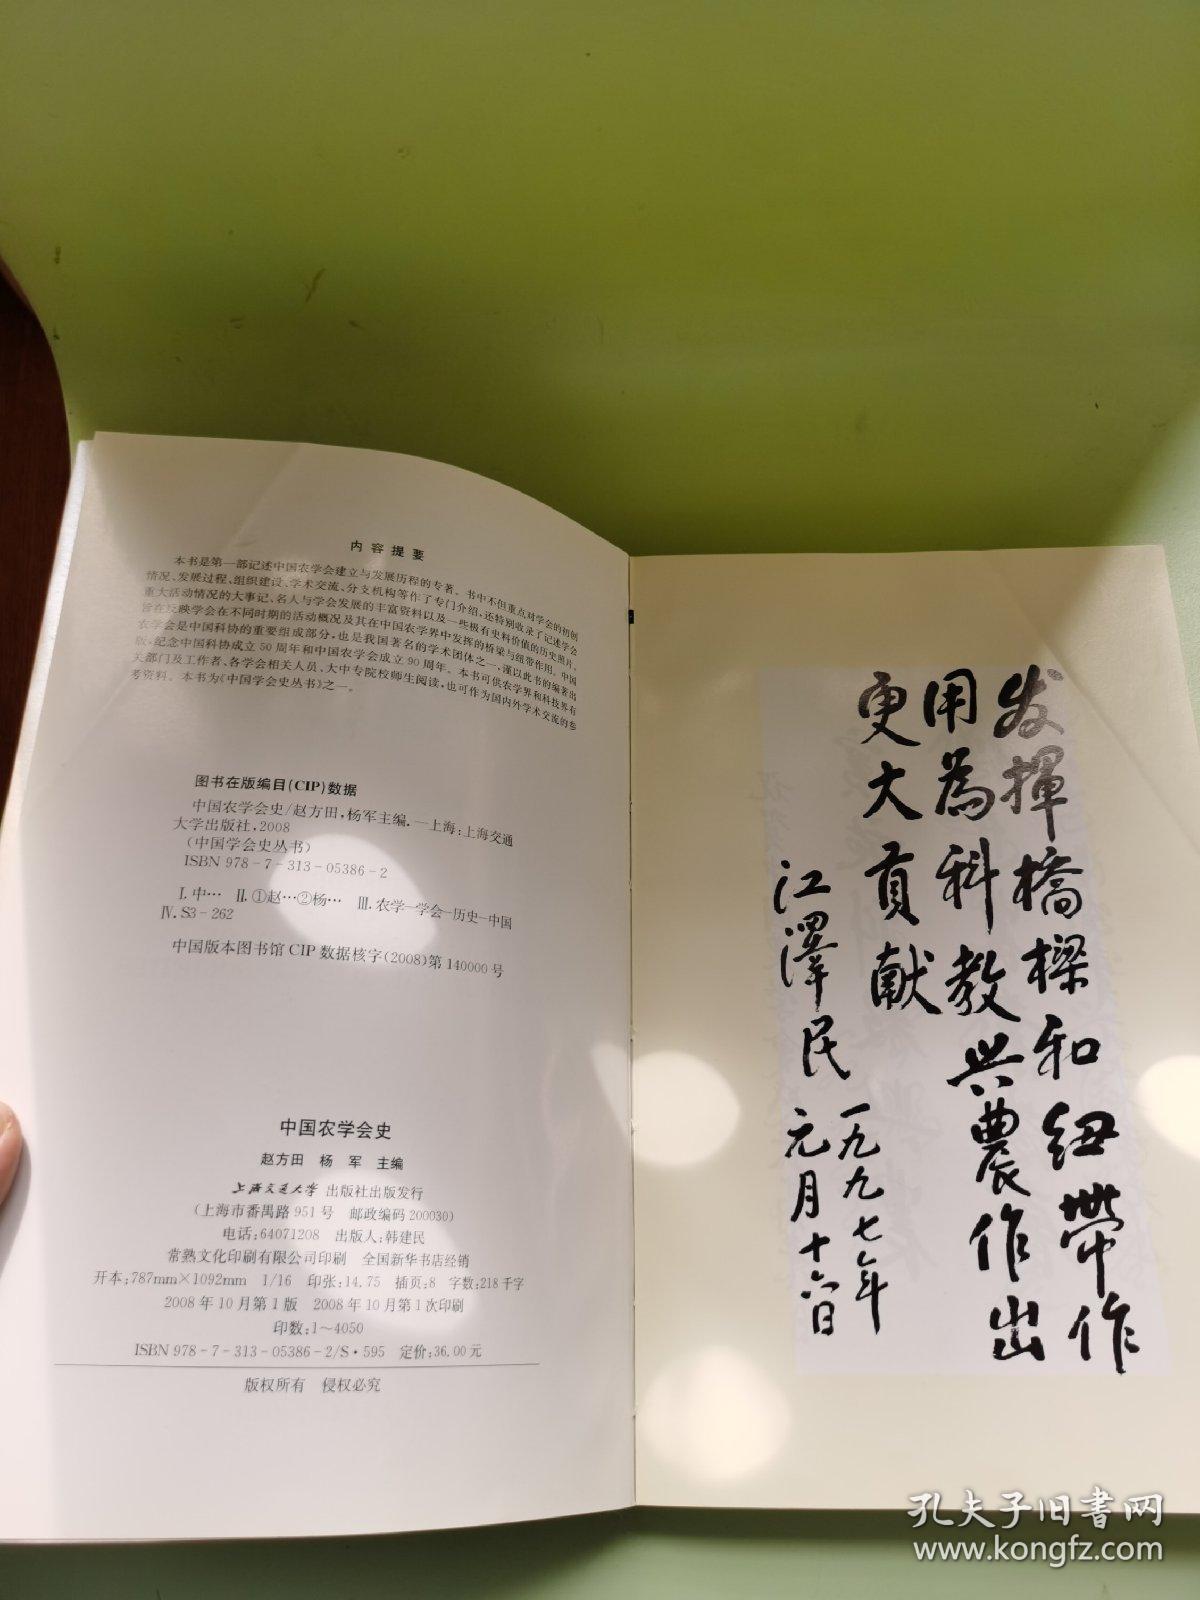 内容提要
本书是第一部记述中国农学会建立与发展历程的专著。书中不但重点对学会的初创
情况、发展过程、组织建设、学术交流、分支机构等作了专门介绍,还特别收录了记述学会
重大活动情况的大事记、名人与学会发展的丰富资料以及一些极有史料价值的历史照片,
旨在反映学会在不同时期的活动概况及其在中国农学界中发挥的桥梁与纽带作用。中国
农学会是中国科协的重要组成部分,也是我国著名的学术团体之一,谨以此书的编著出
版,纪念中国科协成立50周年和中国农学会成立90周年。本书可供农学界和科技界有
关部门及工作者、各学会相关人员、大中专院校师生阅读,也可作为国内外学术交流的参
考资料。本书为《中国学会史丛书》之一。
图书在版编目(CIP)数据
中国农学会史/赵方田,杨军主编.—上海:上海交通
大学出版社,2008
(中国学会史丛书)
ISBN 978-7-313-05386-2
Ⅰ.中… Ⅱ.①赵…②杨… Ⅲ.农学-学会-历史-中国
Ⅳ.S3-262
中国版本图书馆CIP数据核字(2008)第140000号
中国农学会史
赵方田 杨 军 主编
上海交通大学 出版社出版发行
(上海市番禺路951号 邮政编码200030)
电话:64071208 出版人:韩建民
常熟文化印刷有限公司印刷 全国新华书店经销
开本:787mm×1092mm 1/16 印张:14.75 插页:8 字数:218千字
2008年10月第1版 2008年10月第1次印刷
印数:1~4050
ISBN 978-7-313-05386-2/S·595 定价:36.00元
版权所有 侵权必究
发揮橋樑和纽帶作
用為科教兴農作出
更大貢献
江澤民
一九九七年
元月十六日
孔夫子旧书网
www.kongfz.com